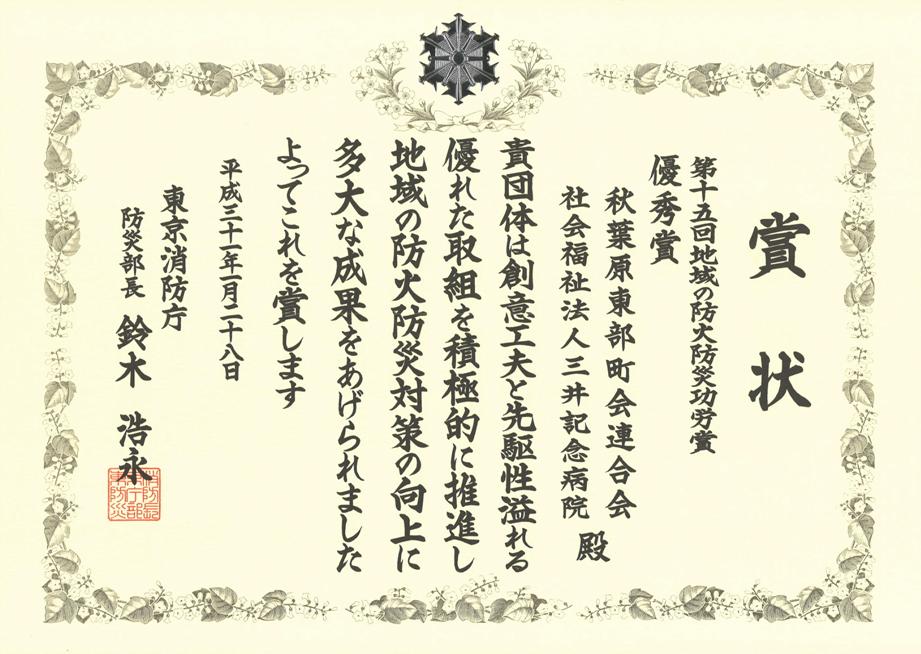 賞状
第十五回地域の防火防災功労賞
優秀賞
秋葉原東部町会連合会
社会福祉法人三井記念病院
殿
貴団体は創意工夫と先駆性溢れる
優れた取組を積極的に推進し
地域の防火防災対策の向上に
多大な成果をあげられました
よってこれを賞します
平成三十一年一月二十八日
東京消防庁
防災部長 鈴木 浩永